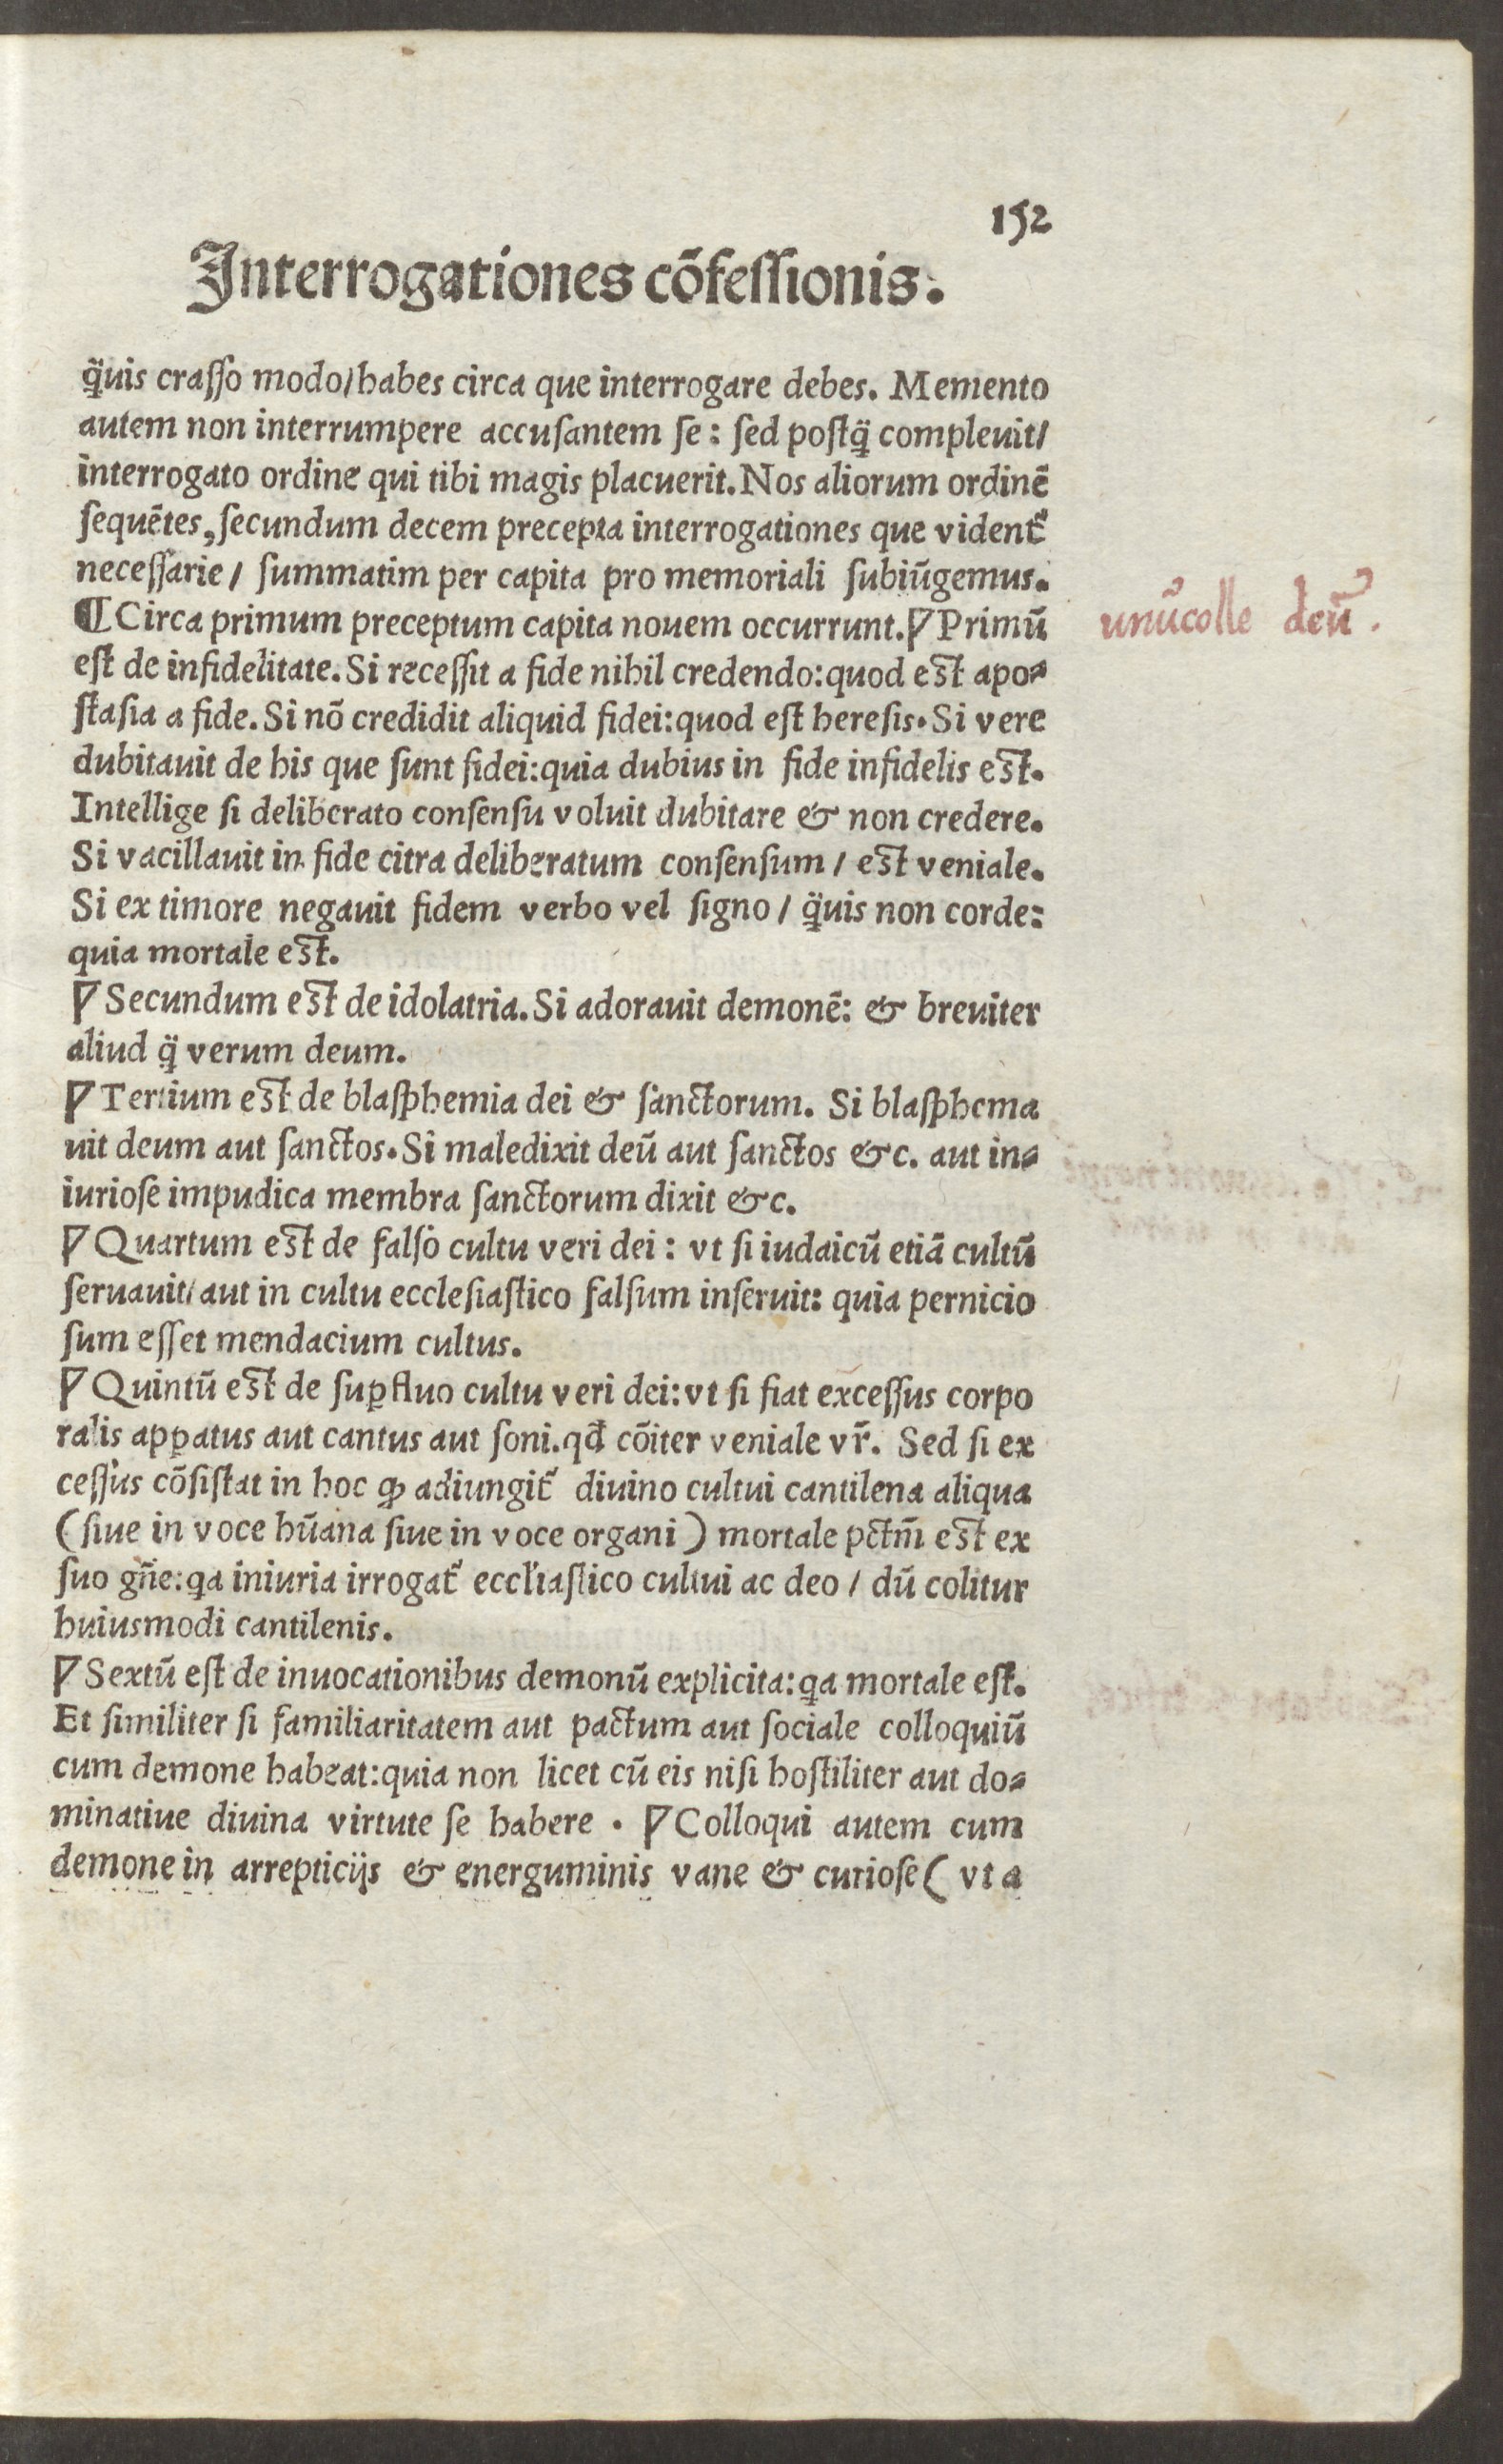 152
Interrogationes cõfeſſionis.
q̃uis craſſo modo/habes circa que interrogare debes. Memento
autem non interrumpere accuſantem ſe: ſed poſtq̃ compleuit/
interrogato ordine qui tibi magis placuerit. Nos aliorum ordinẽ
ſequẽtes, ſecundum decem precepta interrogationes que vident᷑
neceſſarie/ ſummatim per capita pro memoriali ſubiũgemus.
¶ Circa primum preceptum capita nouem occurrunt. ꝑ Primũ
unũcolle deũ.
eſt de infidelitate. Si receſſit a fide nihil credendo: quod eſt apo⸗
ſtaſia a fide. Si nõ credidit aliquid fidei: quod eſt hereſis. Si vere
dubitauit de his que ſunt fidei: quia dubius in fide infidelis eſt.
Intellige ſi deliberato conſenſu voluit dubitare & non credere.
Si vacillauit in fide citra deliberatum conſenſum/ eſt veniale.
Si ex timore negauit fidem verbo vel ſigno/ q̃uis non corde:
quia mortale eſt.
ꝑ Secundum eſt de idolatria. Si adorauit demonẽ: & breuiter
aliud q̃ verum deum.
ꝑ Tertium eſt de blaſphemia dei & ſanctorum. Si blaſphema
uit deum aut ſanctos. Si maledixit deũ aut ſanctos &c. aut in⸗
iurioſe impudica membra ſanctorum dixit &c.
ꝑ Quartum eſt de falſo cultu veri dei: vt ſi iudaicũ etiã cultũ
ſeruauit/ aut in cultu eccleſiaſtico falſum inſeruit: quia pernicio
ſum eſſet mendacium cultus.
ꝑ Quintũ eſt de ſuꝑfluo cultu veri dei: vt ſi fiat exceſſus corpo
ralis apꝑatus aut cantus aut ſoni. qđ cõiter veniale vr̃. Sed ſi ex
ceſſus cõſiſtat in hoc ꝙ adiungit᷑ diuino cultui cantilena aliqua
(ſiue in voce hũana ſiue in voce organi) mortale pctm̃ eſt ex
ſuo gñe: qa iniuria irrogat᷑ eccl'iaſtico cultui ac deo/ dũ colitur
huiusmodi cantilenis.
ꝑ Sextũ eſt de inuocationibus demonũ explicita: qa mortale eſt.
Et ſimiliter ſi familiaritatem aut pactum aut ſociale colloquiũ
cum demone habeat: quia non licet cũ eis niſi hoſtiliter aut do⸗
minatiue diuina virtute ſe habere. ꝑ Colloqui autem cum
demone in arrepticijs & energuminis vane & curioſe ( vt a